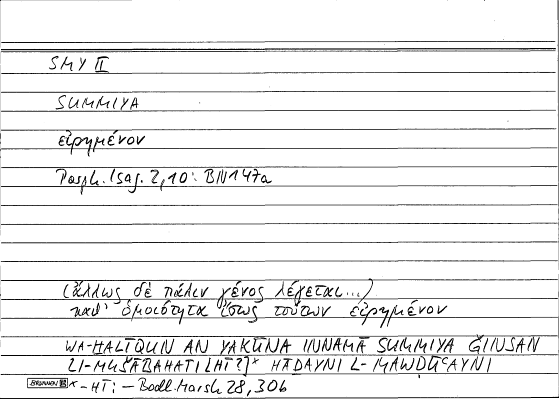 SMY II
SUMMIYA
εἰρημένον
Porph. Isag. 2,10: BN 147a
(ἄλλως δὲ πάλιν γένος λέγεται...)
καθ' ὁμοιότητα ἴσως τούτων εἰρημένον
WA-ḪALĪQUN AN YAKŪNA INNAMĀ SUMMIYA ǦINSAN
LI-MUŠĀBAHATI [HĪ?]* HĀḎAYNI L-MAWḌŪʿAYNI
BRUNNEN *-HĪ: – Bodl. Marsh 28, 30b